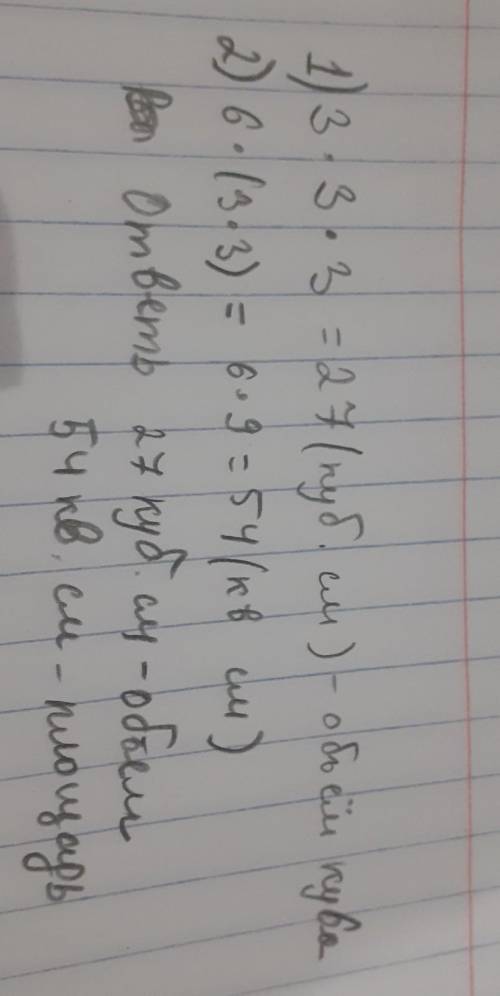 1) 3 · 3 · 3 = 27 (куб. см) - объём куба
2) 6 · (3 · 3) = 6 · 9 = 54 (кв см)
Ответь 27 куб. см - объем
54 кв. см - площадь